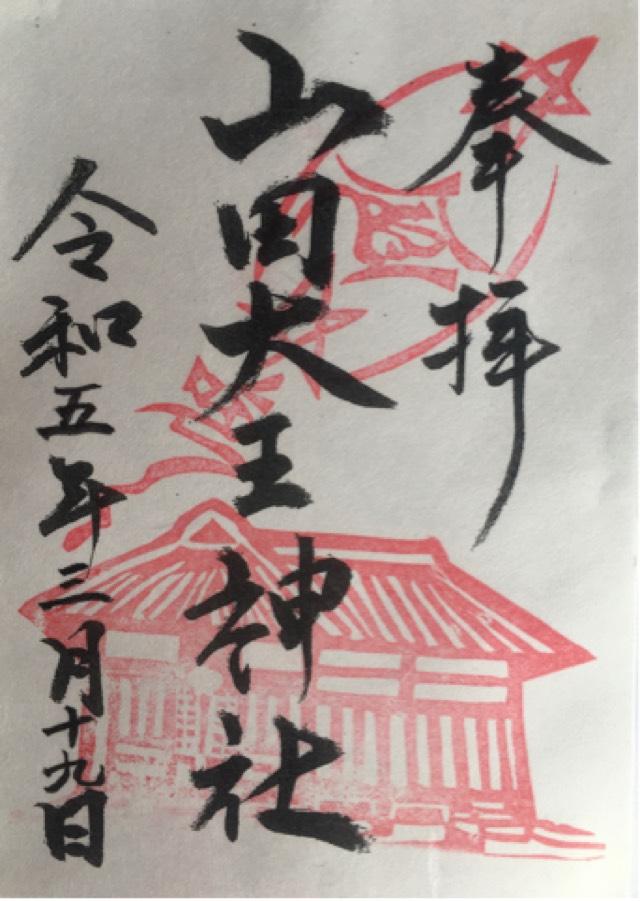 奉拝
山田大王神社
令和五年三月十九日